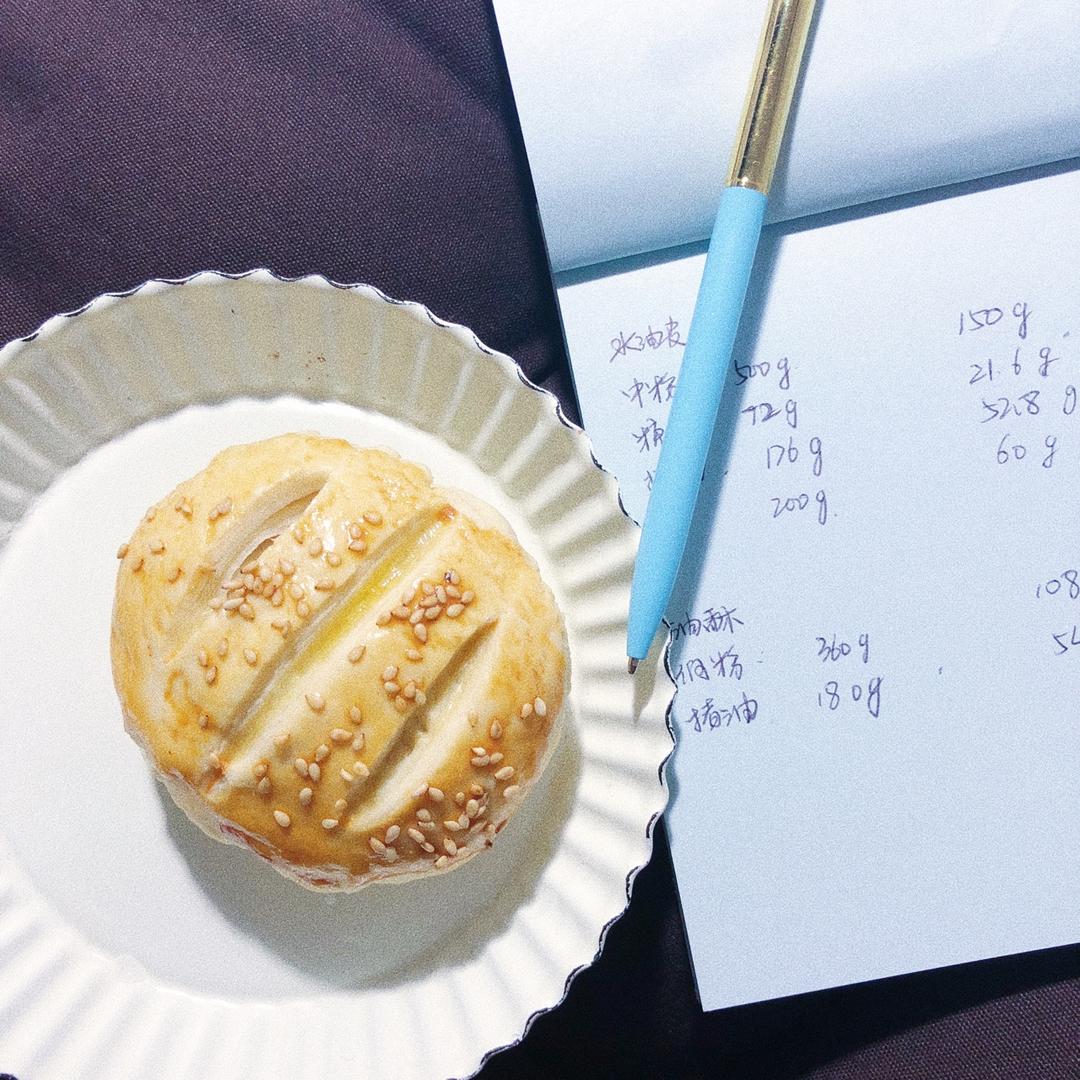 水油皮 150g
中粉 500g 21.6g
糖 72g 52.8g
176g 60g
200g
油酥 108
低粉 360g 54
猪油 180g